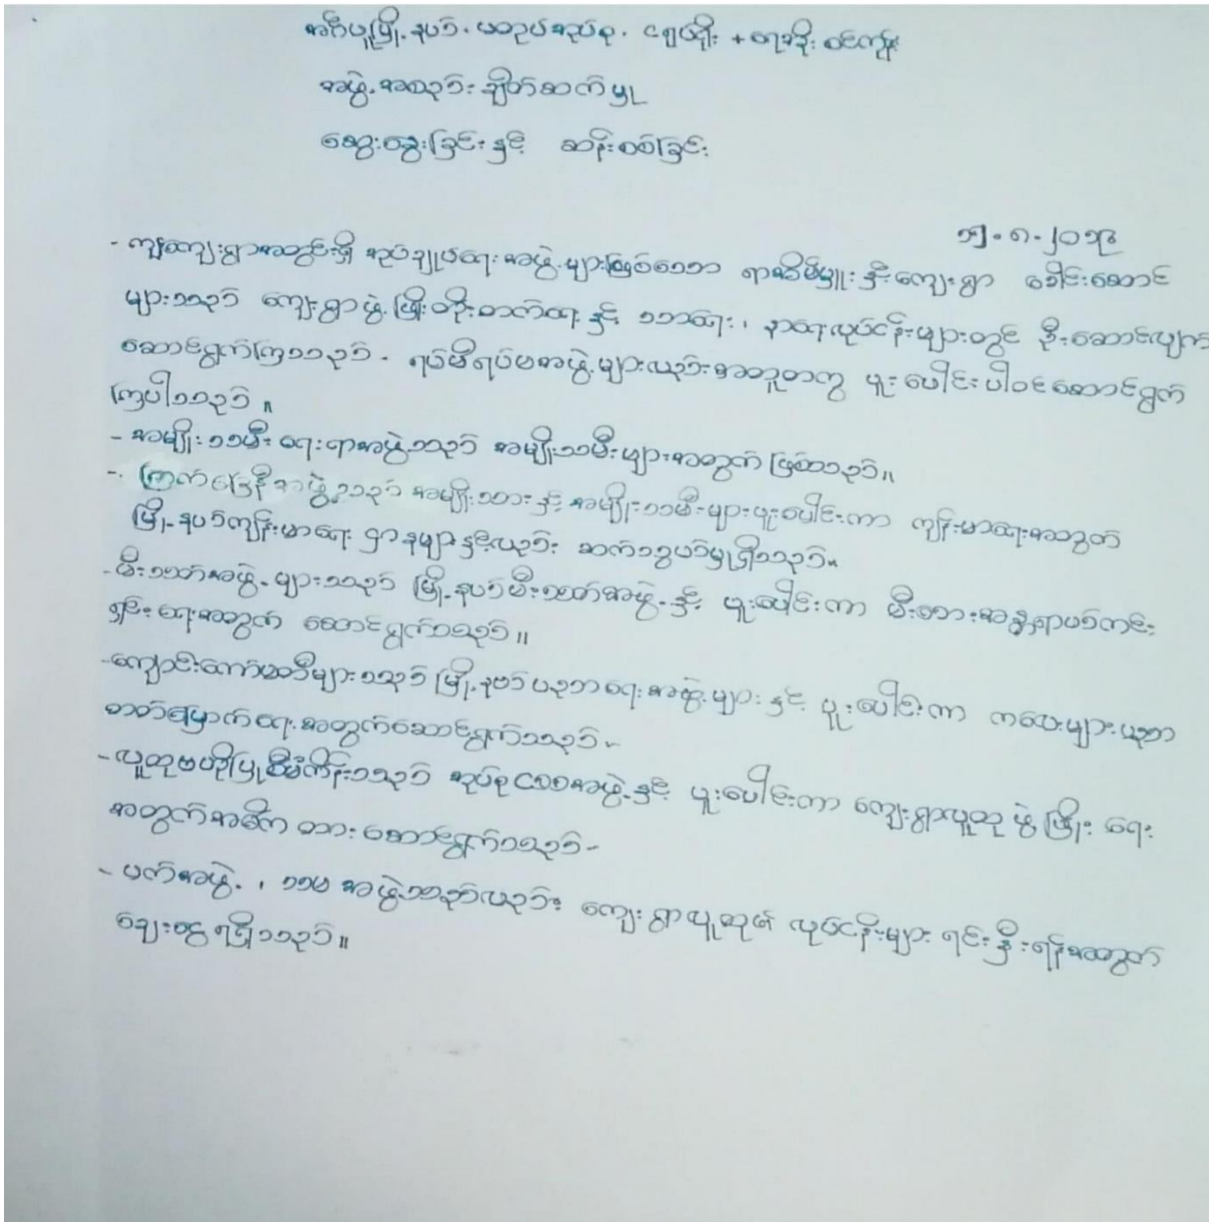 အင်္ဂပူမြို့နယ်၊ မတုပ်အုပ်စု၊ ငှပ်ရိုး + ရေအိုးစင်ကုန်း
အဖွဲ့အစည်းချိတ်ဆက်မှု
ဆွေးနွေးခြင်းနှင့် ဆန်းစစ်ခြင်း
၁၅-၈-၂၀၁၉
- ကျေးရွာအတွင်းရှိ အုပ်ချုပ်ရေးအဖွဲ့များဖြစ်သော ရာအိမ်မှူးနှင့်ကျေးရွာ ခေါင်းဆောင်
များသည် ကျေးရွာဖွံ့ဖြိုးတိုးတက်ရေးနှင့် သာရေး၊ နာရေးလုပ်ငန်းများတွင် ဦးဆောင်လျက်
ဆောင်ရွက်ကြသည်။ ရပ်မိရပ်ဖအဖွဲ့များလည်းအတူတကွ ပူးပေါင်းပါဝင်ဆောင်ရွက်
ကြပါသည်။
- အမျိုးသမီးရေးရာအဖွဲ့သည် အမျိုးသမီးများအတွက် ဖြစ်သည်။
- ကြက်ခြေနီအဖွဲ့သည် အမျိုးသားနှင့် အမျိုးသမီးများပူးပေါင်းကာ ကျန်းမာရေးအတွက်
မြို့နယ်ကျန်းမာရေး ဌာနများနှင့်လည်း ဆက်သွယ်မှုရှိသည်။
- မီးသတ်အဖွဲ့များသည် မြို့နယ်မီးသတ်အဖွဲ့နှင့် ပူးပေါင်းကာ မီးဘေးအန္တရာယ်ကင်း
ရှင်းရေးအတွက် ဆောင်ရွက်သည်။
- ကျောင်းကော်မတီများသည် မြို့နယ်ပညာရေးအဖွဲ့များနှင့် ပူးပေါင်းကာ ကလေးများပညာ
တတ်မြောက်ရေးအတွက်ဆောင်ရွက်သည်။
- လူထုဗဟိုပြုစီမံကိန်းသည် အုပ်စု ငစစအဖွဲ့နှင့် ပူးပေါင်းကာ ကျေးရွာလူထု ဖွံ့ဖြိုးရေး
အတွက်အဓိကထားဆောင်ရွက်သည်။
- ပက်အဖွဲ့၊ သမအဖွဲ့သည်လည်း ကျေးရွာလူထု၏ လုပ်ငန်းများ ရင်းနှီးရန်အတွက်
ချေးငွေရရှိသည်။